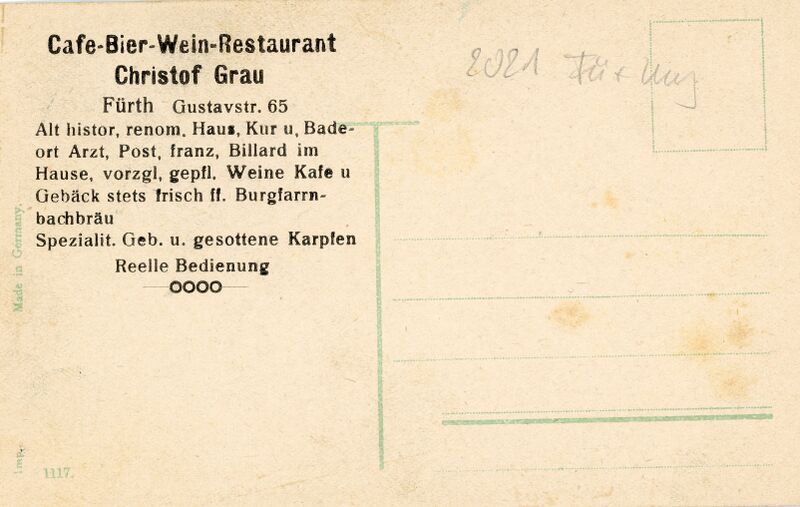 Cafe-Bier-Wein-Restaurant
Christof Grau
Fürth Gustavstr. 65
Alt histor, renom. Haus, Kur u, Bade-
ort Arzt, Post, franz, Billard im
Hause, vorzgl, gepfl. Weine Kafe u
Gebäck stets frisch ff. Burgfarrn-
bachbräu
Spezialit. Geb. u. gesottene Karpfen
Reelle Bedienung
2021
Made in Germany.
Imp.
1117.